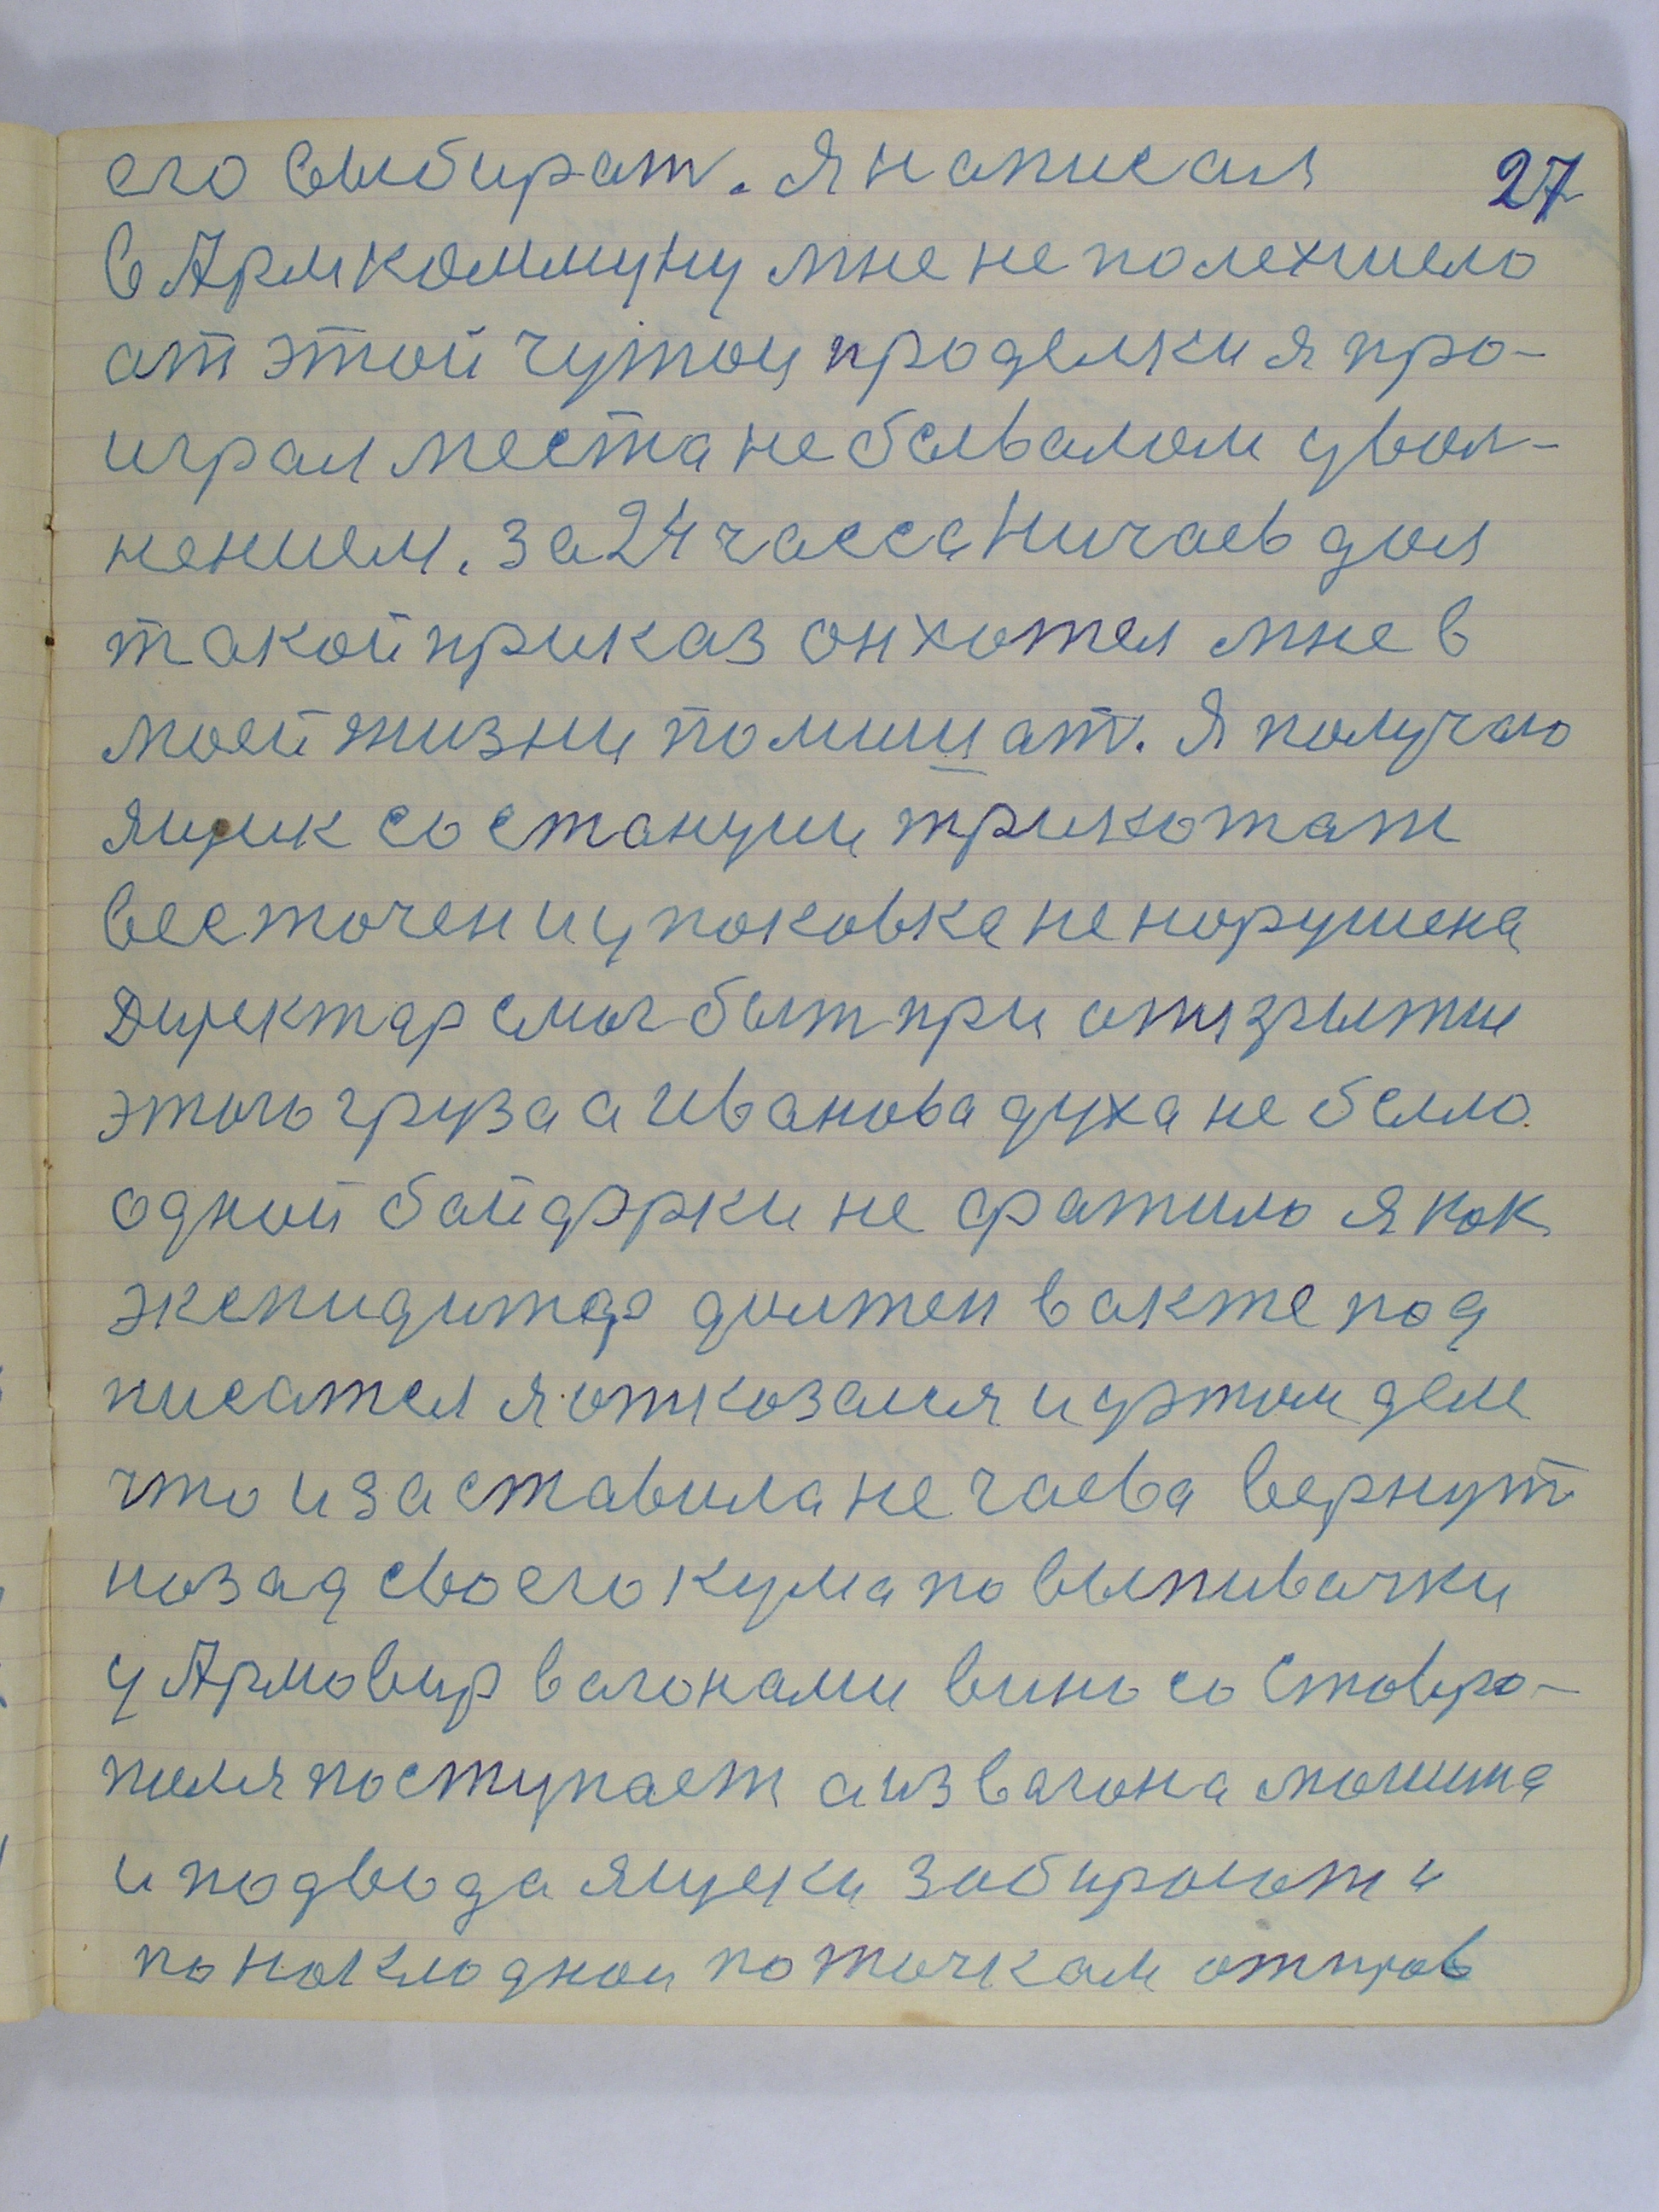 его выбират. Я написал 27
в Армкоммуну мне не полехшело
ат этой чутой проделки я про-
играл места не бывалом увол-
нением. За 24 часса Ничаев дал
такой приказ он хотел мне в
моей жизни помишат. Я получаю
ящик со станции трикотаж
вес точен и упаковка не норушена
Директар смог быт при
этого груза а Иванова духа не было.
одной байдэрки не фатило я как
экспидитар должен в акте под
писатся я отказался и этом деле
что и заставила нечаева вернут
назад своего кума по выпивачки
у Армовир вагонами вино со Ставро-
поля поступает а из вагона машина
и подвода ящеки забирают и
по накладной по точкам отправ